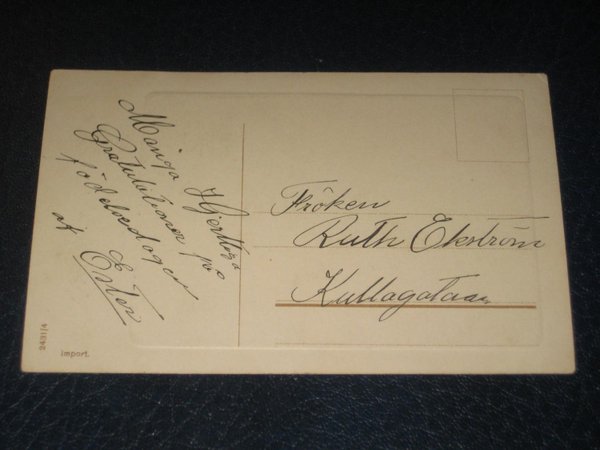 Många Hjertliga
Gratulationer på
födelsedagen
af
Ester
Fröken
Ruth Ekström
Kullagatan
2431/4
Import.